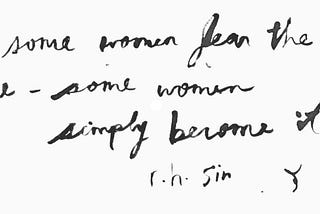 some women fear the
e - some women
simply become it
r.h. Sin